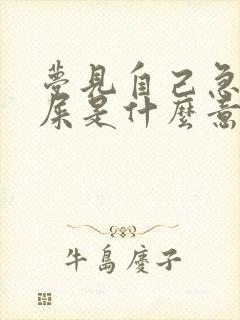 夢見自己急
屎是什麼意
牛島慶子